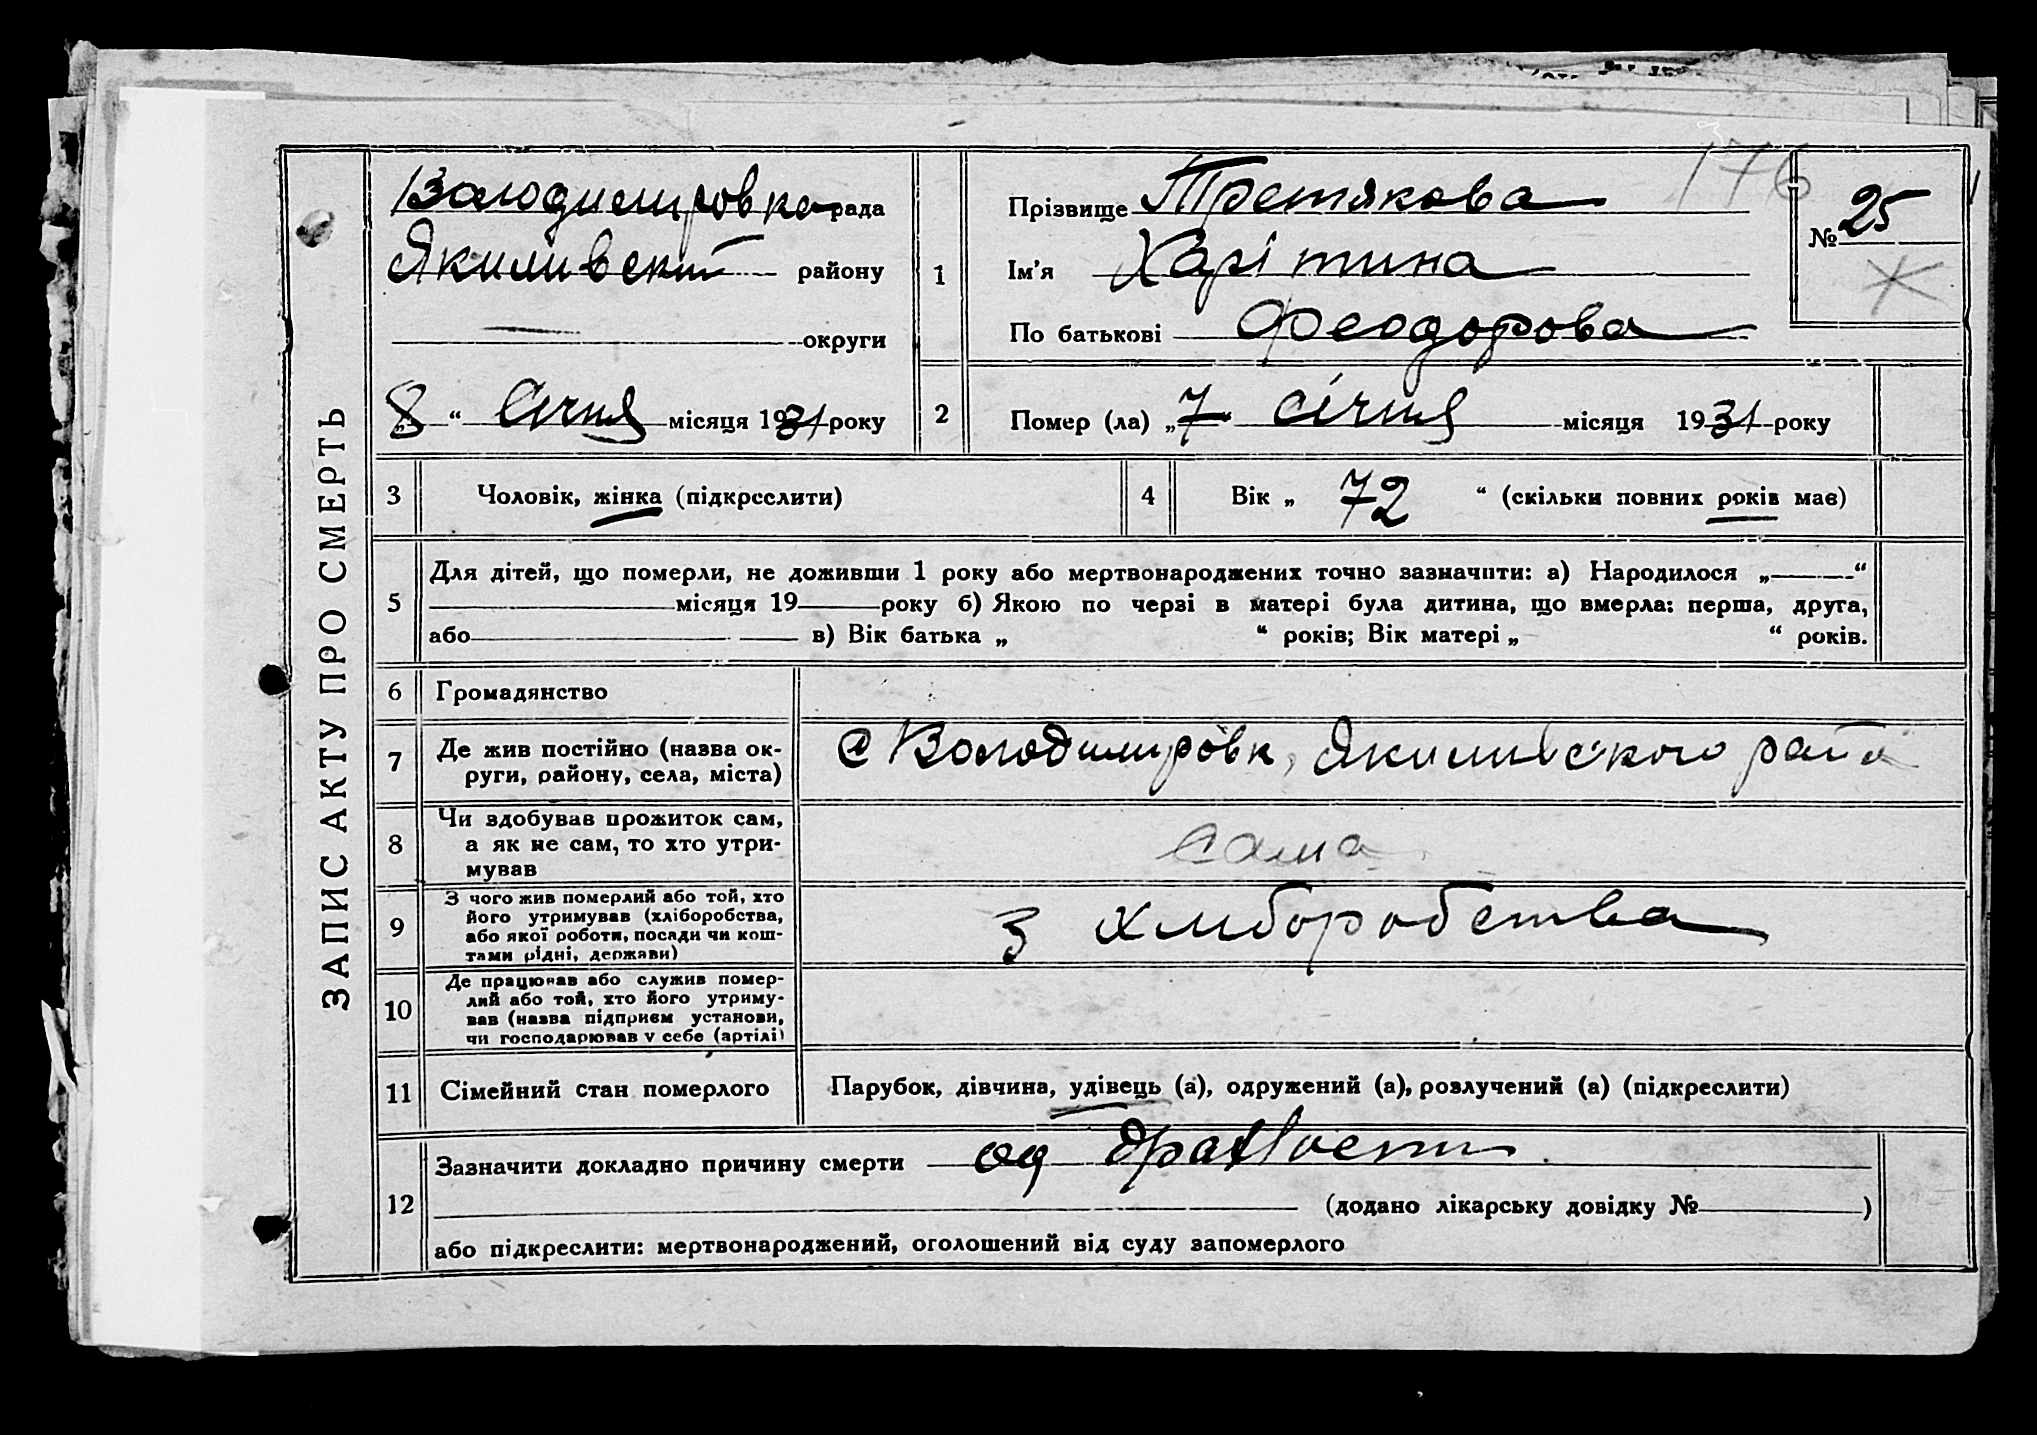 ЗАПИС АКТУ ПРО СМЕРТЬ
176
Володимировка рада
Якимівский району
округи
„8“ Січня місяця 1931 року
1
Прізвище Третякова
Ім’я Харітина
По батькові Феодорова
№ 25
2
Помер (ла) „7“ січня місяця 1931 року
3 Чоловік, жінка (підкреслити)
4 Вік „ 72 “ (скільки повних років має)
5
Для дітей, що померли, не доживши 1 року або мертвонароджених точно зазначити: а) Народилося „ “
місяця 19 року б) Якою по черзі в матері була дитина, що вмерла: перша, друга,
або в) Вік батька „ “ років; Вік матері „ “ років.
6 Громадянство
7 Де жив постійно (назва ок-
руги, району, села, міста)
с Володимировк, Якимивского райо
8 Чи здобував прожиток сам,
а як не сам, то хто утри-
мував
сама
9 З чого жив померлий або той, хто
його утримував (хліборобства,
або якої роботи, посади чи кош-
тами рідні, держави)
З хлиборобства
10 Де працював або служив помер-
лий або той, хто його утриму-
вав (назва підприєм установи,
чи господарював у себе (артілі)
11 Сімейний стан померлого
Парубок, дівчина, удівець (а), одружений (а), розлучений (а) (підкреслити)
12 Зазначити докладно причину смерти од
(додано лікарську довідку № )
або підкреслити: мертвонароджений, оголошений від суду запомерлого